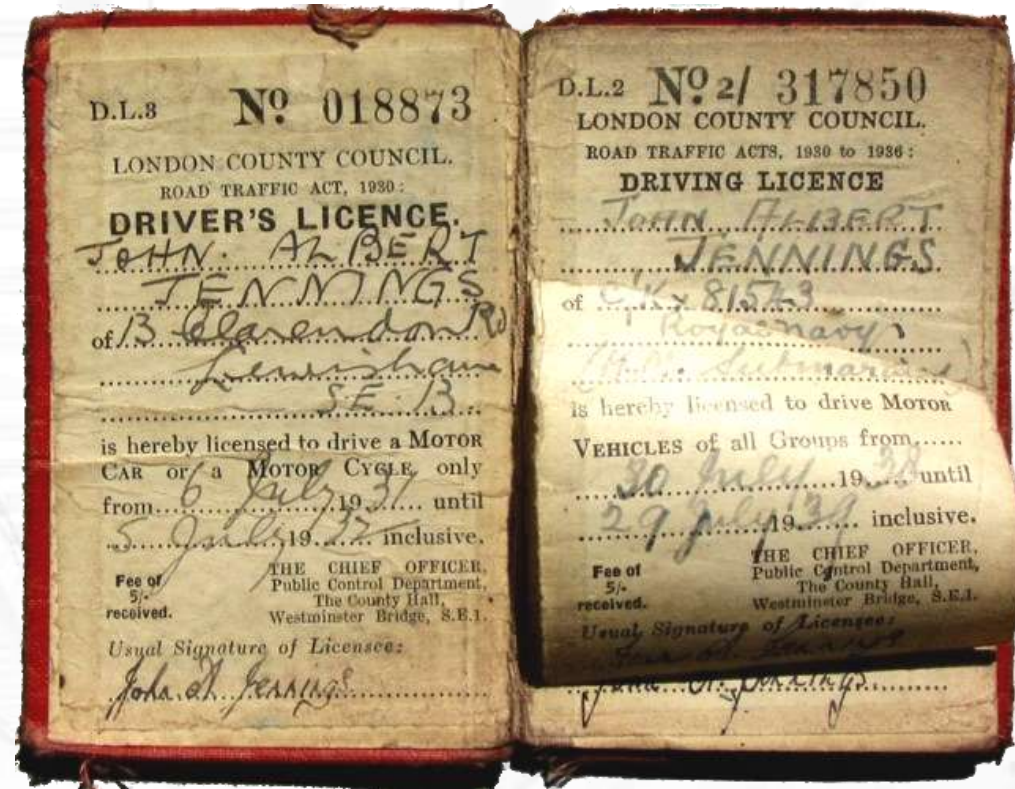 D.L.3 Nº 018873
LONDON COUNTY COUNCIL.
ROAD TRAFFIC ACT, 1930:
DRIVER'S LICENCE.
JOHN. ALBERT
JENNINGS
of 13 Clarendon Rd
Lewisham
S.E. 13
is hereby licensed to drive a MOTOR
CAR or a MOTOR CYCLE only
from 6 July 19 until
5 July 19 inclusive.
Fee of
5/-
received.
THE CHIEF OFFICER,
Public Control Department,
The County Hall,
Westminster Bridge, S.E.1.
Usual Signature of Licensee:
John A. Jennings
D.L.2 Nº 2/ 317850
LONDON COUNTY COUNCIL.
ROAD TRAFFIC ACTS, 1930 to 1936:
DRIVING LICENCE
JOHN ALBERT
JENNINGS
of C/KX 81543
Royal Navy
(H.M. Submarines)
is hereby licensed to drive MOTOR
VEHICLES of all Groups from
30 July 1938 until
29 July 1939 inclusive.
Fee of
5/-
received.
THE CHIEF OFFICER,
Public Control Department,
The County Hall,
Westminster Bridge, S.E.1.
Usual Signature of Licensee:
John A. Jennings
John A. Jennings